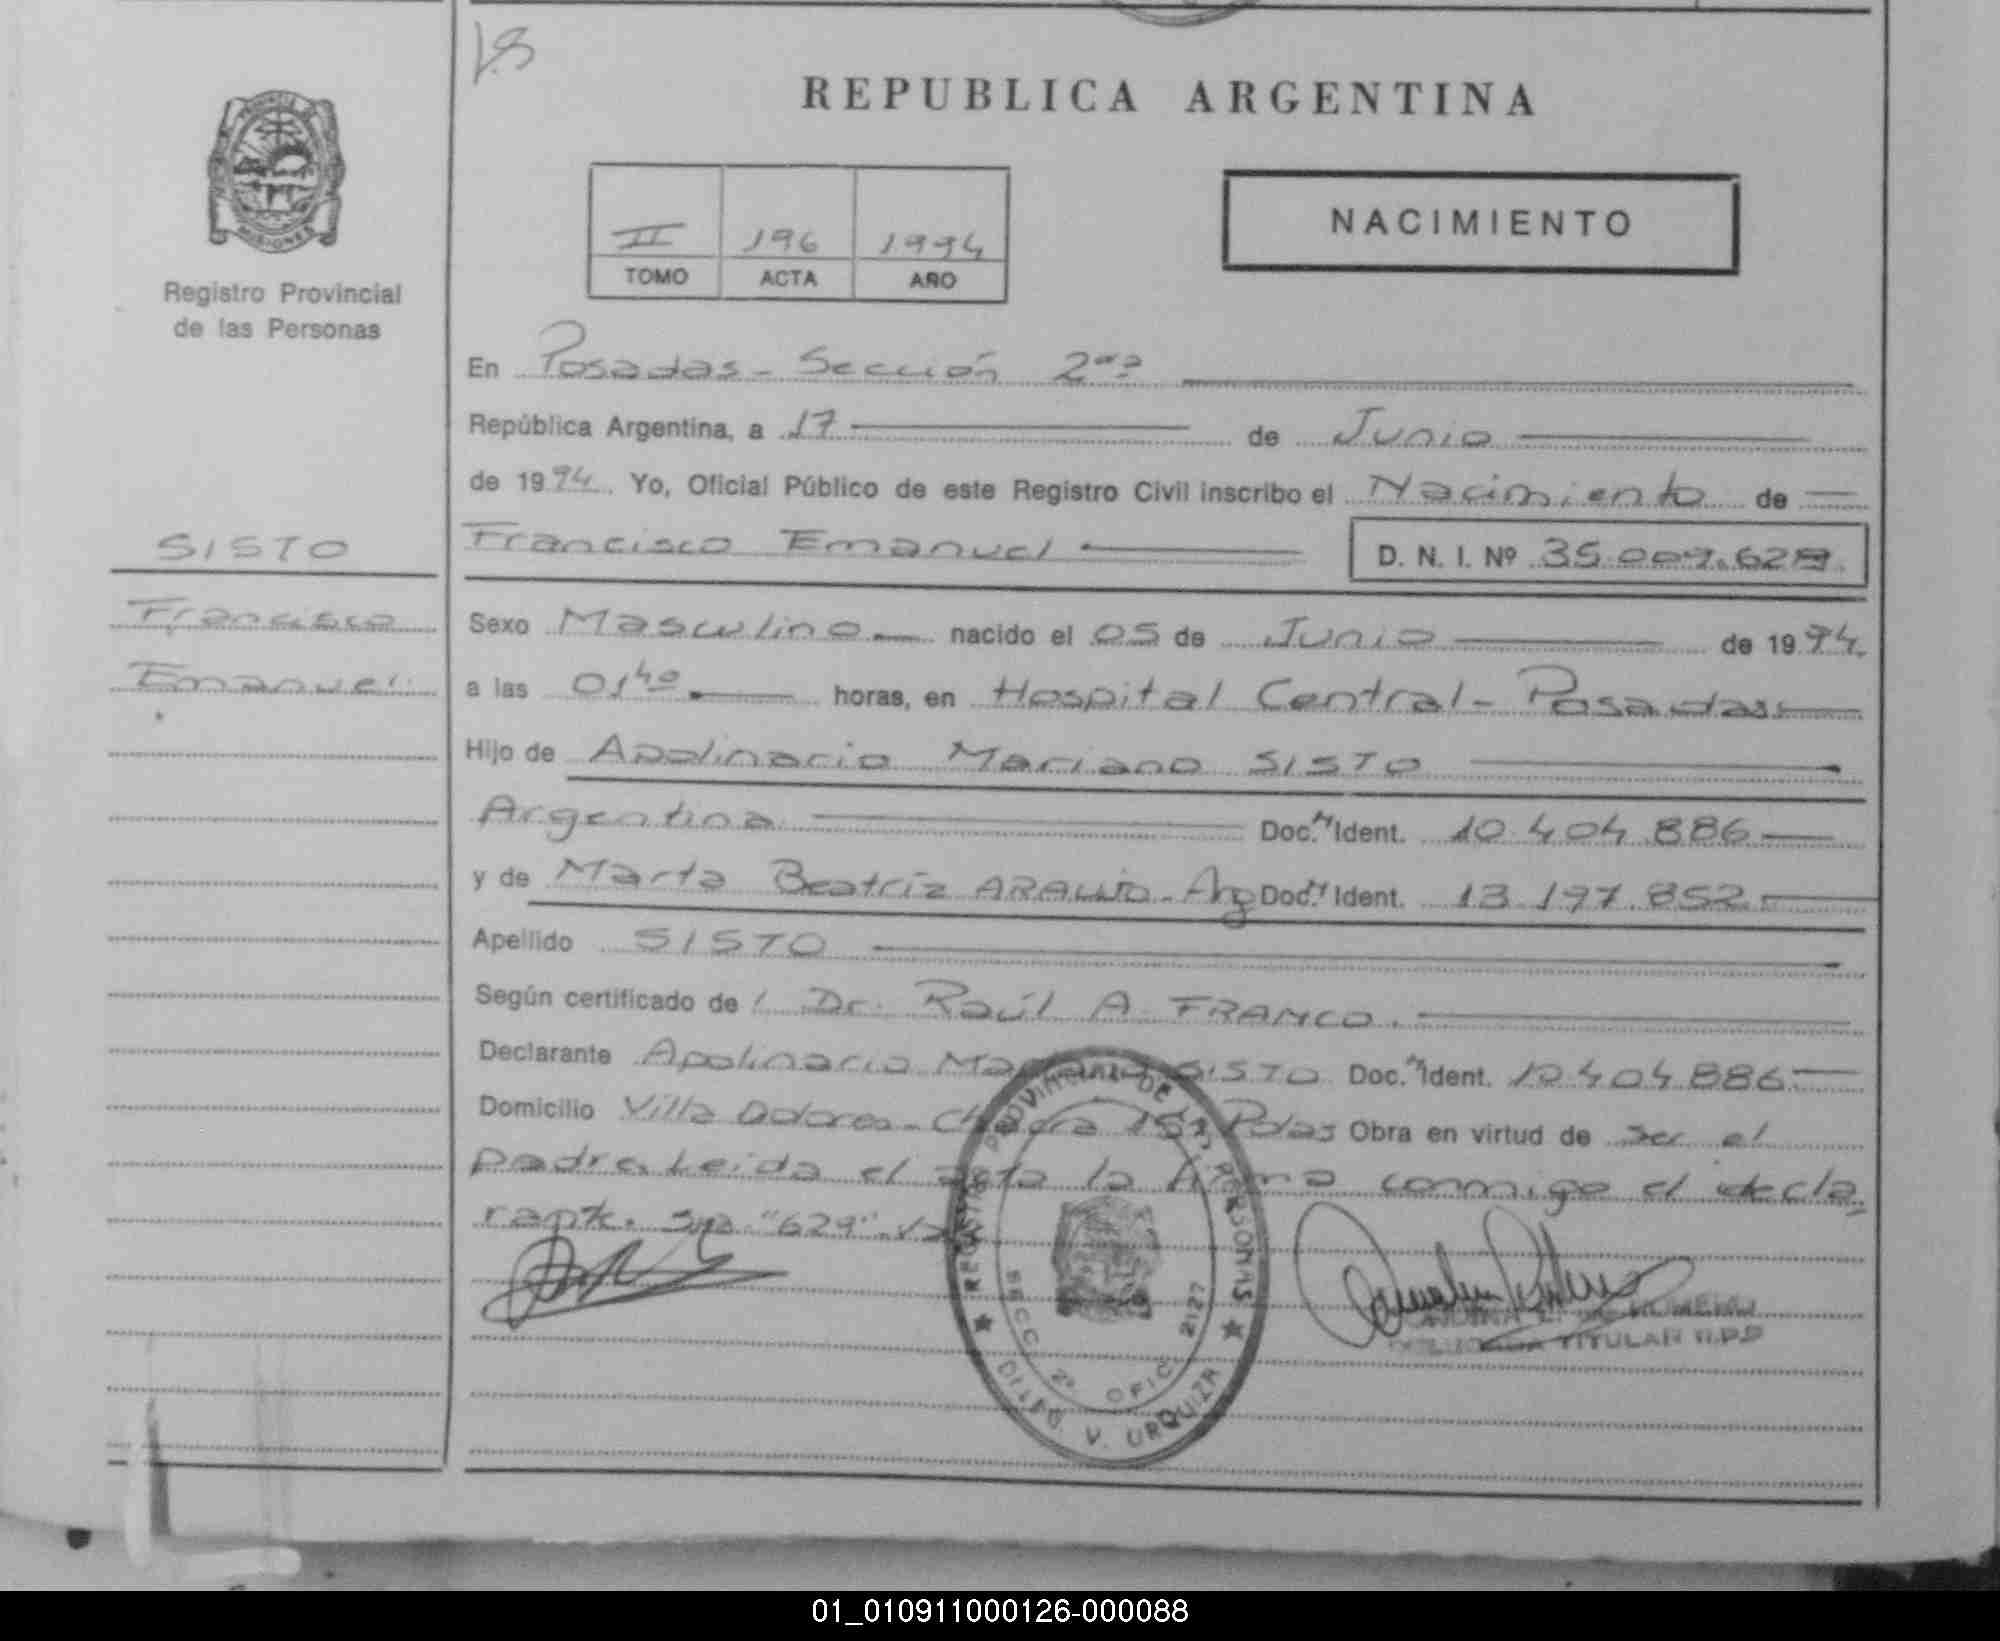 REPUBLICA ARGENTINA
MISIONES
Registro Provincial
de las Personas
II 196 1994
TOMO ACTA AÑO
NACIMIENTO
En Posadas - Sección 2da
República Argentina, a 17 de Junio
de 1994 Yo, Oficial Público de este Registro Civil inscribo el Nacimiento de
SISTO
Francisco
Emanuel
Francisco Emanuel D. N. I. Nº 35.009.629
Sexo Masculino nacido el 05 de Junio de 1994.
a las 01 40 horas, en Hospital Central - Posadas
Hijo de Apolinario Mariano SISTO
Argentina Doc. N Ident. 10.404.886
y de Marta Beatríz ARAUJO - Arg Doc. N Ident. 13.197.852
Apellido SISTO
Según certificado de Dr. Raúl A. FRANCO.
Declarante Apolinario Mariano SISTO Doc. N Ident. 10.404.886
Domicilio Villa Dolores - Chacra 151 Pdas Obra en virtud de ser el
padre. Leída el acta la firma conmigo el decla
rante. "629".
REGISTRO PROVINCIAL DE LAS PERSONAS
SECC. 2º OFIC. 2127
V. URQUIZA
TITULAR R.P.P
01_010911000126-000088